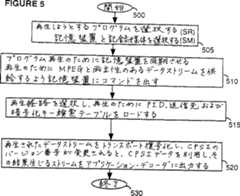 FIGURE 5
開始
500
再生しようとするプログラムを選択する(SR)
記憶装置と記録媒体を選択する(SM)
505
プログラム再生のために記憶装置を同期させる
再生のためにMPEGと両立性のあるデータストリームを供
給するよう記憶装置にコマンドを出す
510
再生経路を選択し、再生のためにPID、送信先および
暗号化キー検索テーブルをロードする
515
再生されたデータストリームをトランスポート復号化し、CPSIの
バージョン番号が発見されると、CPSIデータを利用し、その
結果生じるストリームをアプリケーション・デコーダに出力する
520
終了
530